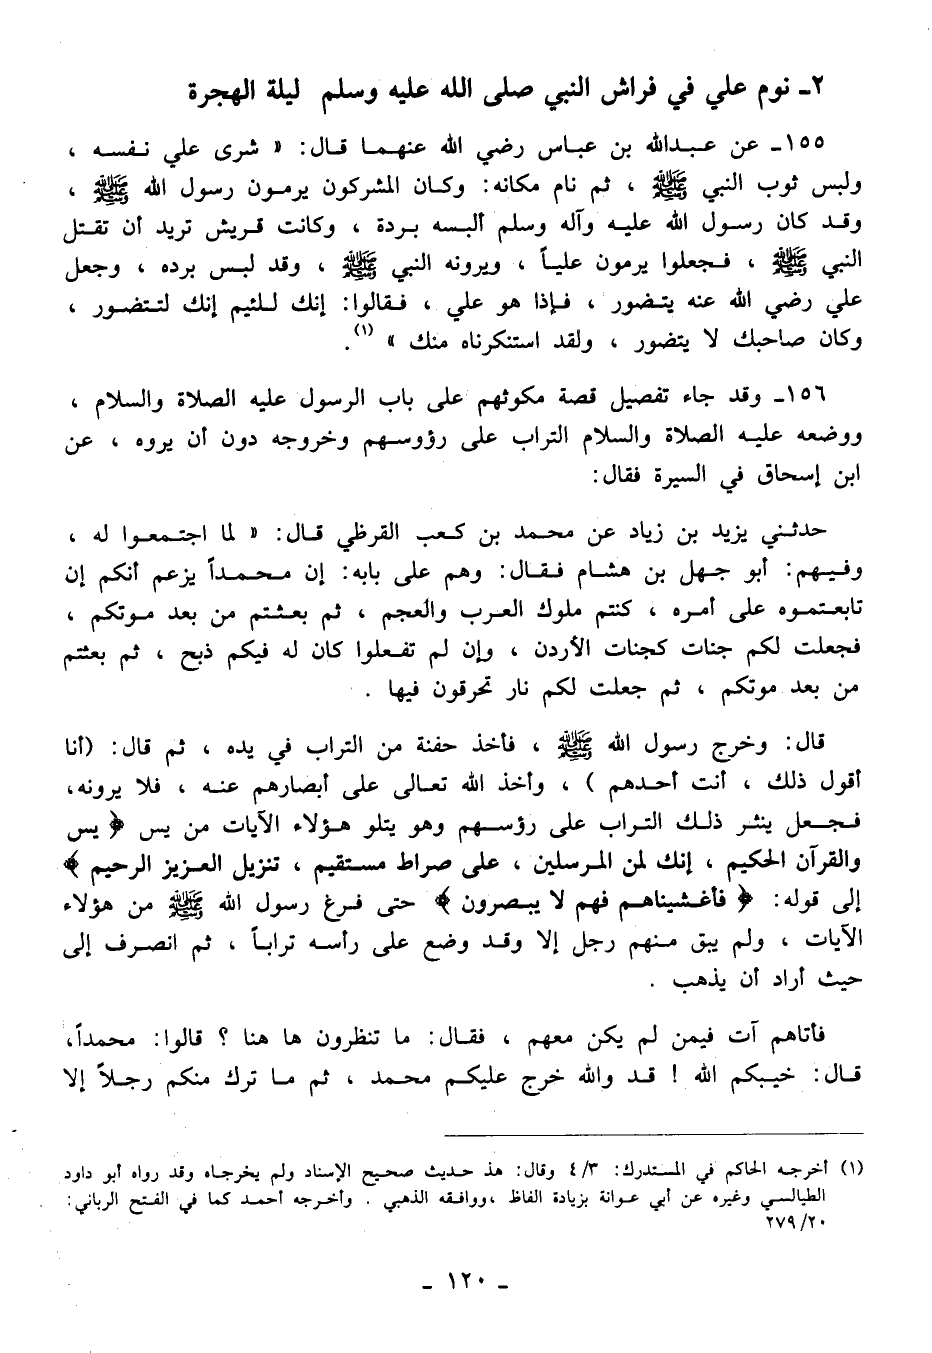 ٢ـ نوم علي في فراش النبي صلى الله عليه وسلم ليلة الهجرة
١٥٥ـ عن عبدالله بن عباس رضي الله عنهما قال: « شرى علي نفسه ،
ولبس ثوب النبي ﷺ ، ثم نام مكانه: وكان المشركون يرمون رسول الله ﷺ ،
وقد كان رسول الله عليه وآله وسلم ألبسه بردة ، وكانت قريش تريد أن تقتل
النبي ﷺ ، فجعلوا يرمون علياً ، ويرونه النبي ﷺ ، وقد لبس برده ، وجعل
علي رضي الله عنه يتضور ، فإذا هو علي ، فقالوا: إنك للئيم إنك لتتضور ،
وكان صاحبك لا يتضور ، ولقد استنكرناه منك » (١).
١٥٦ـ وقد جاء تفصيل قصة مكوثهم على باب الرسول عليه الصلاة والسلام ،
ووضعه عليه الصلاة والسلام التراب على رؤوسهم وخروجه دون أن يروه ، عن
ابن إسحاق في السيرة فقال:
حدثني يزيد بن زياد عن محمد بن كعب القرظي قال: « لما اجتمعوا له ،
وفيهم: أبو جهل بن هشام فقال: وهم على بابه: إن محمداً يزعم أنكم إن
تابعتموه على أمره ، كنتم ملوك العرب والعجم ، ثم بعثتم من بعد موتكم ،
فجعلت لكم جنات كجنات الأردن ، وإن لم تفعلوا كان له فيكم ذبح ، ثم بعثتم
من بعد موتكم ، ثم جعلت لكم نار تحرقون فيها .
قال: وخرج رسول الله ﷺ ، فأخذ حفنة من التراب في يده ، ثم قال: (أنا
أقول ذلك ، أنت أحدهم ) ، وأخذ الله تعالى على أبصارهم عنه ، فلا يرونه،
فجعل ينثر ذلك التراب على رؤسهم وهو يتلو هؤلاء الآيات من يس ﴿ يس
والقرآن الحكيم ، إنك لمن المرسلين ، على صراط مستقيم ، تنزيل العزيز الرحيم ﴾
إلى قوله: ﴿ فأغشيناهم فهم لا يبصرون ﴾ حتى فرغ رسول الله ﷺ من هؤلاء
الآيات ، ولم يبق منهم رجل إلا وقد وضع على رأسه تراباً ، ثم انصرف إلى
حيث أراد أن يذهب .
فأتاهم آت فيمن لم يكن معهم ، فقال: ما تنظرون ها هنا ؟ قالوا: محمداً،
قال: خيبكم الله ! قد والله خرج عليكم محمد ، ثم ما ترك منكم رجلاً إلا
(١) أخرجه الحاكم في المستدرك: ٤/٣ وقال: هذ حديث صحيح الإسناد ولم يخرجاه وقد رواه أبو داود
الطيالسي وغيره عن أبي عوانة بزيادة الفاظ ،ووافقه الذهبي . وأخرجه أحمد كما في الفتح الرباني:
٢٧٩/٢٠
ـ ١٢٠ ـ